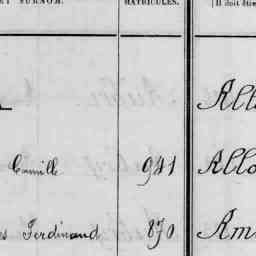 ET SURNOM. MATRICULES. Il doit être
Camille 941 Allo
Ferdinand 870 Am